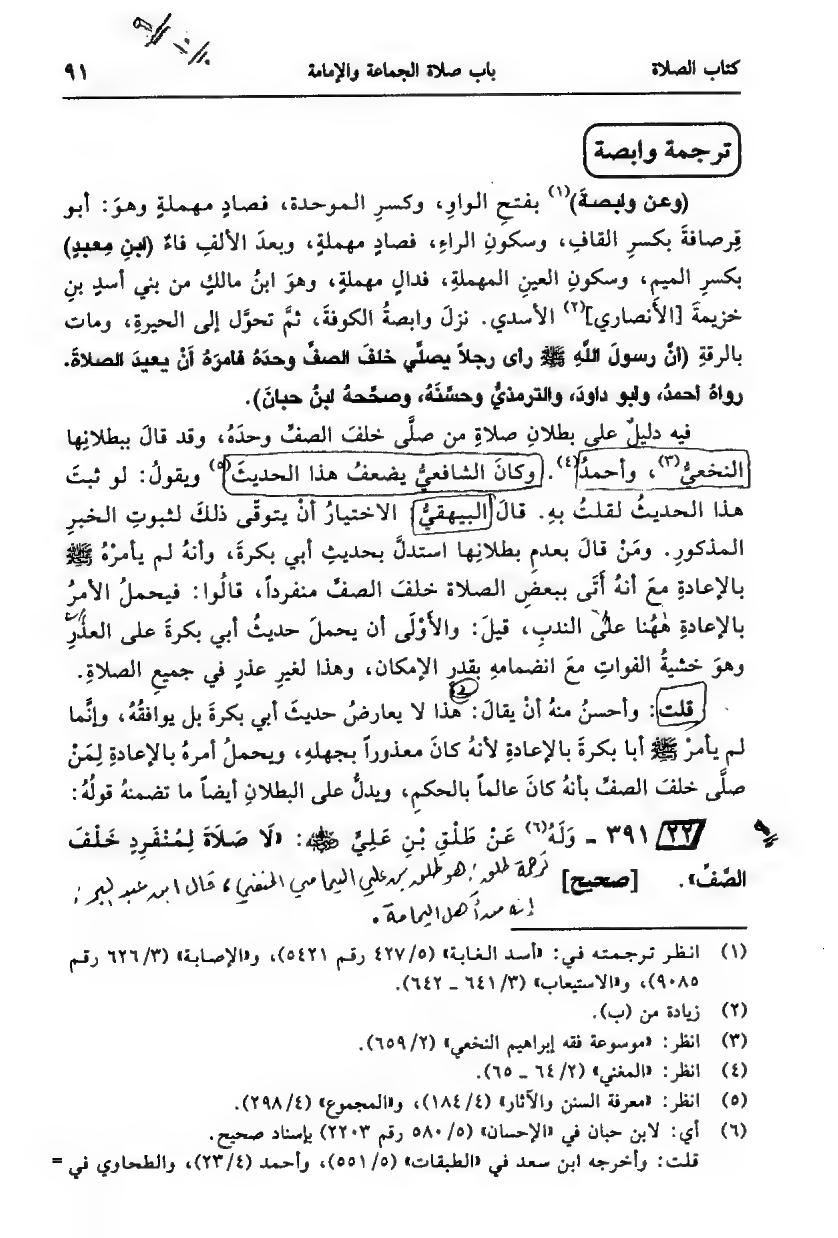 كتاب الصلاة باب صلاة الجماعة والإمامة ٩١
ترجمة وابصة
(وعن وابصةَ)(١) بفتحِ الواوِ، وكسرِ الموحدة، فصادٍ مهملةٍ وهوَ: أبو
قِرصافةَ بكسرِ القافِ، وسكونِ الراءِ، فصادٍ مهملةٍ، وبعدَ الألفِ فاءٌ (ابنِ مِعبدٍ)
بكسرِ الميمِ، وسكونِ العينِ المهملةِ، فدالٍ مهملةٍ، وهوَ ابنُ مالكٍ من بني أسدٍ بنِ
خزيمةَ [الأَنصاري](٢) الأسدي. نزلَ وابصةُ الكوفةَ، ثمَّ تحوَّل إلى الحيرةِ، ومات
بالرقةِ (أنَّ رسولَ اللَّهِ ﷺ رأى رجلاً يصلِّي خلفَ الصفِّ وحدَهُ فامرَهُ أنْ يعيدَ الصلاةَ.
رواهُ احمدُ، وابو داودَ، والترمذيُّ وحسَّنَهُ، وصحَّحهُ ابنُ حبانَ).
فيه دليلٌ على بطلانِ صلاةِ من صلَّى خلفَ الصفِّ وحدَهُ، وقد قالَ ببطلانِها
النخعيُّ(٣)، وأحمدُ(٤). وكانَ الشافعيُّ يضعفُ هذا الحديثَ(٥) ويقولُ: لو ثبتَ
هذا الحديثُ لقلتُ بهِ. قالَ البيهقيُّ الاختيارُ أنْ يتوقَّى ذلكَ لثبوتِ الخبرِ
المذكورِ. ومَنْ قالَ بعدمِ بطلانِها استدلَّ بحديثِ أبي بكرةَ، وأنهُ لم يأمرْهُ ﷺ
بالإعادةِ معَ أنهُ أَتَى ببعضِ الصلاة خلفَ الصفِّ منفرداً، قالُوا: فيحملُ الأمرُ
بالإعادةِ هٰهُنا على الندبِ، قيلَ: والأَوْلَى أن يحملَ حديثُ أبي بكرةَ على العذرِ
وهوَ خشيةُ الفواتِ معَ انضمامهِ بقدرِ الإمكان، وهذا لغيرِ عذرٍ في جميعِ الصلاةِ.
قلت: وأحسنُ منهُ أنْ يقالَ: هذا لا يعارضُ حديثَ أبي بكرةَ بل يوافقُهُ، وإنَّما
لم يأمرْ ﷺ أبا بكرةَ بالإعادةِ لأنهُ كانَ معذوراً بجهلهِ، ويحملُ أمرهُ بالإعادةِ لِمَنْ
صلَّى خلفَ الصفِّ بأنهُ كانَ عالماً بالحكمِ، ويدلُّ على البطلانِ أيضاً ما تضمنهُ قولُهُ:
٢٢/ ٣٩١ - وَلَهُ(٦) عَنْ طَلْقِ بْنِ عَلِيٍّ رضي الله عنه: «لَا صَلَاةَ لِمُنْفَرِدٍ خَلْفَ
الصَّفِّ». [صحيح]
ترجمة طلق: هو طلق بن علي اليمامي الحنفي، قال ابن عبد البر:
إنه من أهل اليمامة.
(١) انظر ترجمته في: «أسد الغابة» (٤٢٧/٥ رقم ٥٤٢١)، و«الإصابة» (٦٢٦/٣ رقم
٩٠٨٥)، و«الاستيعاب» (٦٤١/٣ - ٦٤٢).
(٢) زيادة من (ب).
(٣) انظر: «موسوعة فقه إبراهيم النخعي» (٦٥٩/٢).
(٤) انظر: «المغني» (٦٤/٢ - ٦٥).
(٥) انظر: «معرفة السنن والآثار» (١٨٤/٤)، و«المجموع» (٢٩٨/٤).
(٦) أي: لابن حبان في «الإحسان» (٥٨٠/٥ رقم ٢٢٠٣) بإسناد صحيح.
قلت: وأخرجه ابن سعد في «الطبقات» (٥٥١/٥)، وأحمد (٢٣/٤)، والطحاوي في =